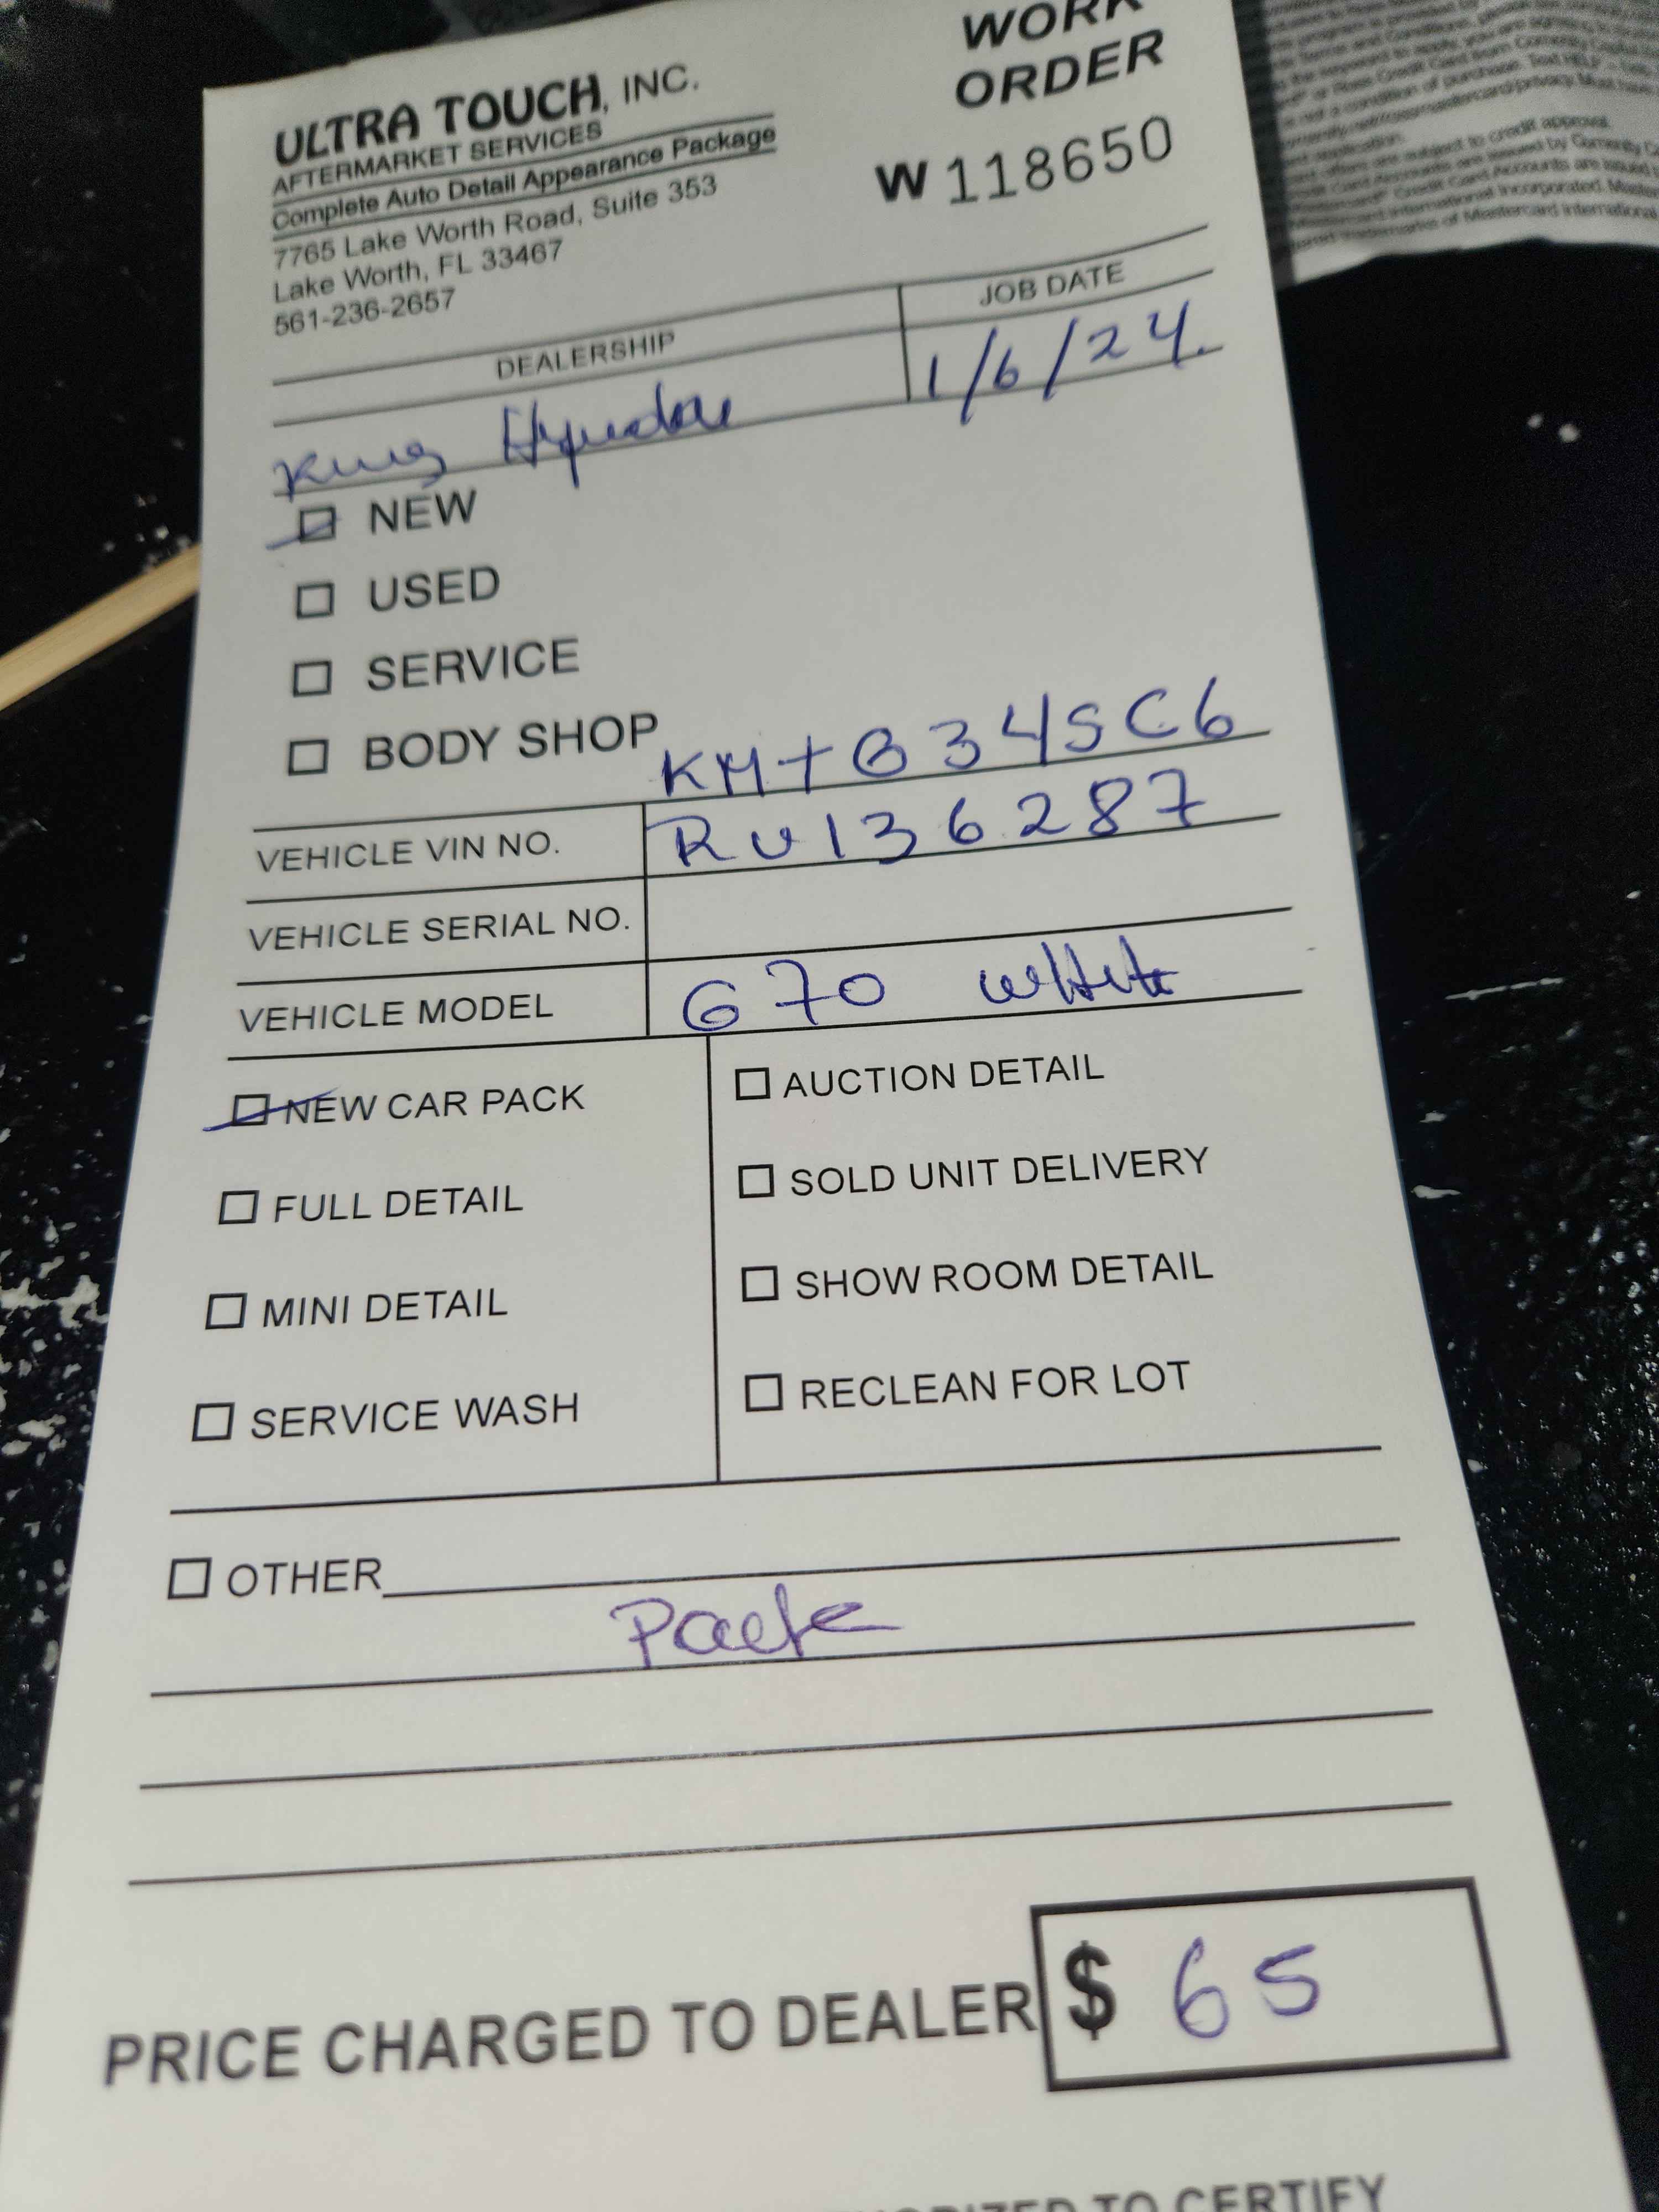 WORK
ORDER
ULTRA TOUCH, INC.
AFTERMARKET SERVICES
Complete Auto Detail Appearance Package
7765 Lake Worth Road, Suite 353
Lake Worth, FL 33467
561-236-2657
W 118650
DEALERSHIP
JOB DATE
King Hyundai
1/6/24
NEW
USED
SERVICE
BODY SHOP
KMTG34SC6
VEHICLE VIN NO. RU136287
VEHICLE SERIAL NO.
VEHICLE MODEL G70 white
NEW CAR PACK
FULL DETAIL
MINI DETAIL
SERVICE WASH
AUCTION DETAIL
SOLD UNIT DELIVERY
SHOW ROOM DETAIL
RECLEAN FOR LOT
OTHER
PRICE CHARGED TO DEALER $ 65
TO CERTIFY